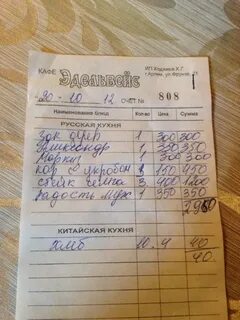 КАФЕ Эдельвейс ИП Ходаков Х.Г.
г.Артем, ул.Фрунзе
20-10 12 СЧЕТ № 808
Наименование блюд Кол-во Цена Сумма
РУССКАЯ КУХНЯ
1 300 300
1 350 350
Моркы 1 300 300
с укропом 150 450
стейк семга 3 400 1200
радость муж 1 350 350
2950
КИТАЙСКАЯ КУХНЯ
хлеб 10 4 40
40.